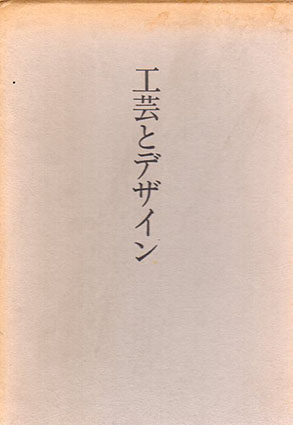 工芸とデザイン